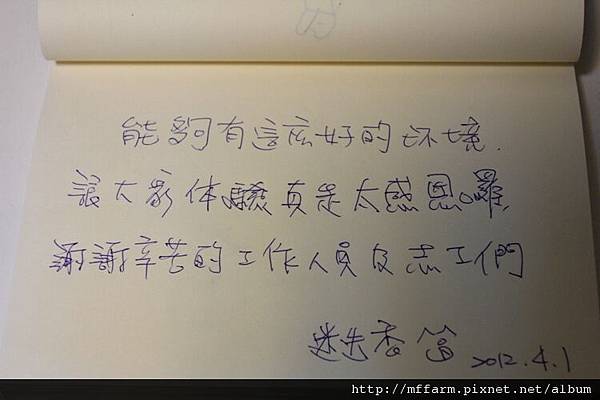 能夠有這広好的环境.
讓大家体驗真是太感恩囉,
謝謝辛苦的工作人員及志工們
迷迭香 2012.4.1
http://mffarm.pixnet.net/album